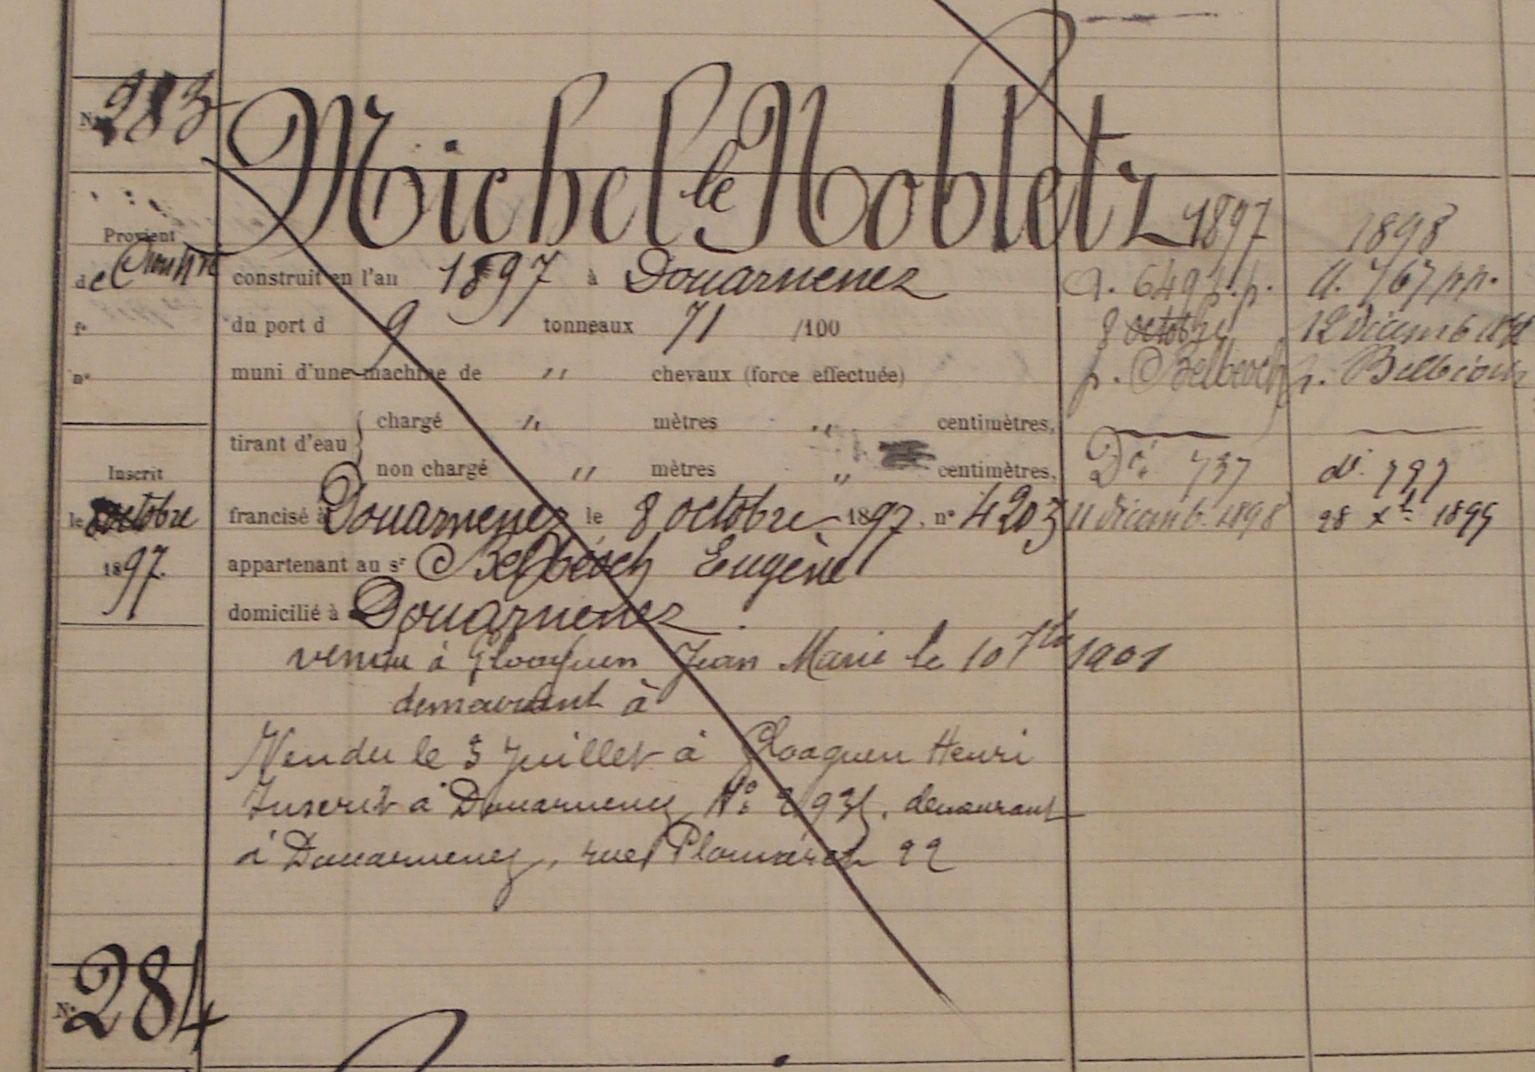 N° 283
Michel le Nobletz
Provient
de
f°
n°
Inscrit
le 8 octobre
1897.
construit en l'an 1897 à Douarnenez
du port d 9 tonneaux 71 /100
muni d'une machine de " chevaux (force effectuée)
tirant d'eau
chargé " mètres " centimètres,
non chargé " mètres " centimètres,
francisé à Douarnenez le 8 octobre 1897, n° 4203
appartenant au sr Belbéoch Eugène
domicilié à Douarnenez.
vendu à Gloaguen Jean Marie le 10 1901
demeurant à
Vendu le 3 Juillet à Gloaguen Henri
Inscrit à Douarnenez N° 2935. demeurant
à Douarnenez, rue Plomarch 22
1897
a. 649 p.p.
8 octobre
p. Belbeoch
Dé: 737
11 décemb. 1898
1898
a. 767 pp.
12 décembre
p. Belbéoch
dé. 797
28 Xbre 1899
N° 284